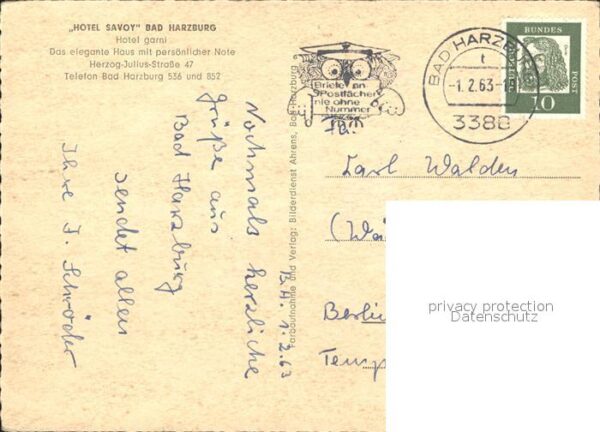 „HOTEL SAVOY" BAD HARZBURG
Hotel garni
Das elegante Haus mit persönlicher Note
Herzog-Julius-Straße 47
Telefon Bad Harzburg 536 und 852
B.H. 1.2.63
Nochmals herzliche
Grüße aus
Bad Harzburg
sendet allen
Ihre I. Schröder
Farbaufnahme und Verlag: Bilderdienst Ahrens, Bad Harzburg
Briefe an
Postfächer
nie ohne
Nummer
BAD HARZBURG
t
-1.2.63-
3388
DEUTSCHE
BUNDES
POST
10
Karl Walden
(Wa
Berlin
Temp
privacy protection
Datenschutz